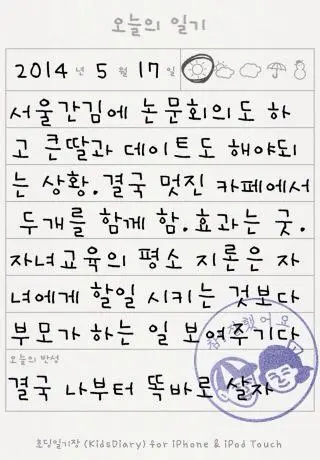 오늘의 일기
2014 년 5 월 17 일
서울간김에 논문회의도 하
고 큰딸과 데이트도 해야되
는 상황.결국 멋진 카페에서
두개를 함께 함.효과는 굿.
자녀교육의 평소 지론은 자
녀에게 할일 시키는 것보다
부모가 하는 일 보여주기다
참 잘했어요
오늘의 반성
결국 나부터 똑바로 살자
초딩일기장 (KidsDiary) for iPhone & iPod Touch